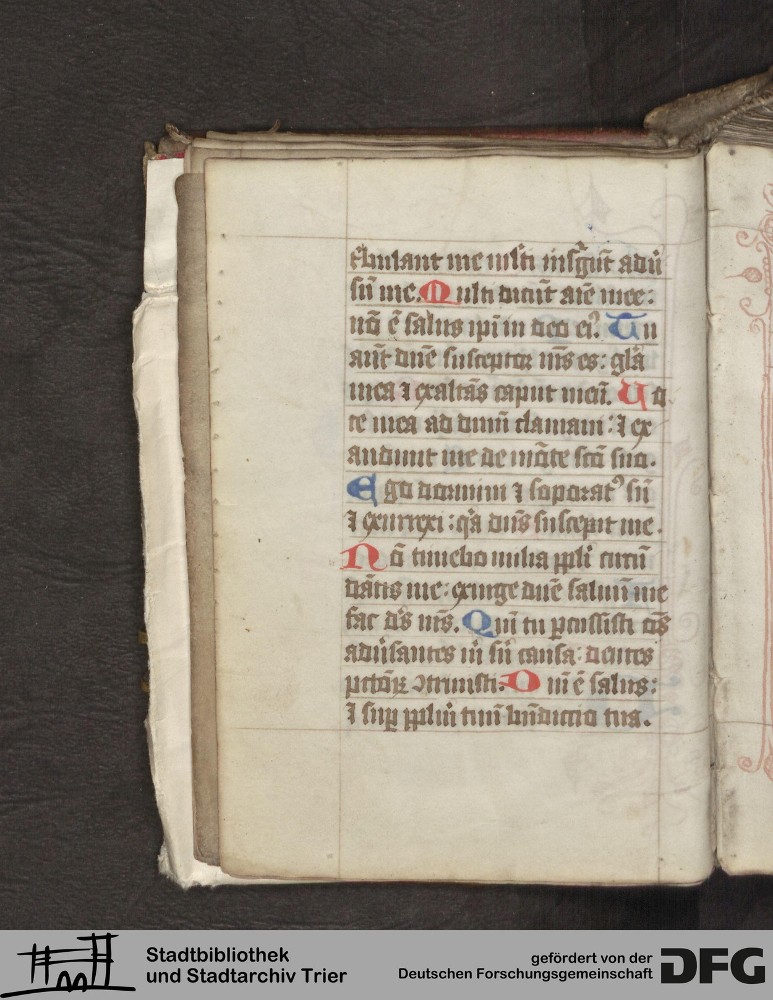 tribulant me multi insurgūt adū
sū me. Multi dicūt aīe mee:
nō ē salus ipi in deo eiꝰ. Tu
aūt dn̄e susceptor m̄s es: glā
mea ⁊ exaltās caput meū. Uo
ce mea ad dnm̄ clamaui: ⁊ ex
audiuit me de mōte scō suo.
Ego dormiui ⁊ soporatꝰ sū
⁊ exurrexi: qͣa dn̄s suscepit me.
Nō timebo milia ppli circū
dātis me: exurge dn̄e saluū me
fac dꝰs m̄s. Qm̄ tu ꝑcussisti oēs
adūsantes m̄ sn̄ causa: dentes
pctōꝝ ↄtriuisti. Dn̄i ē salus:
⁊ suꝑ pplm̄ tuū bn̄dictio tua.
Stadtbibliothek
und Stadtarchiv Trier
gefördert von der
Deutschen Forschungsgemeinschaft
DFG